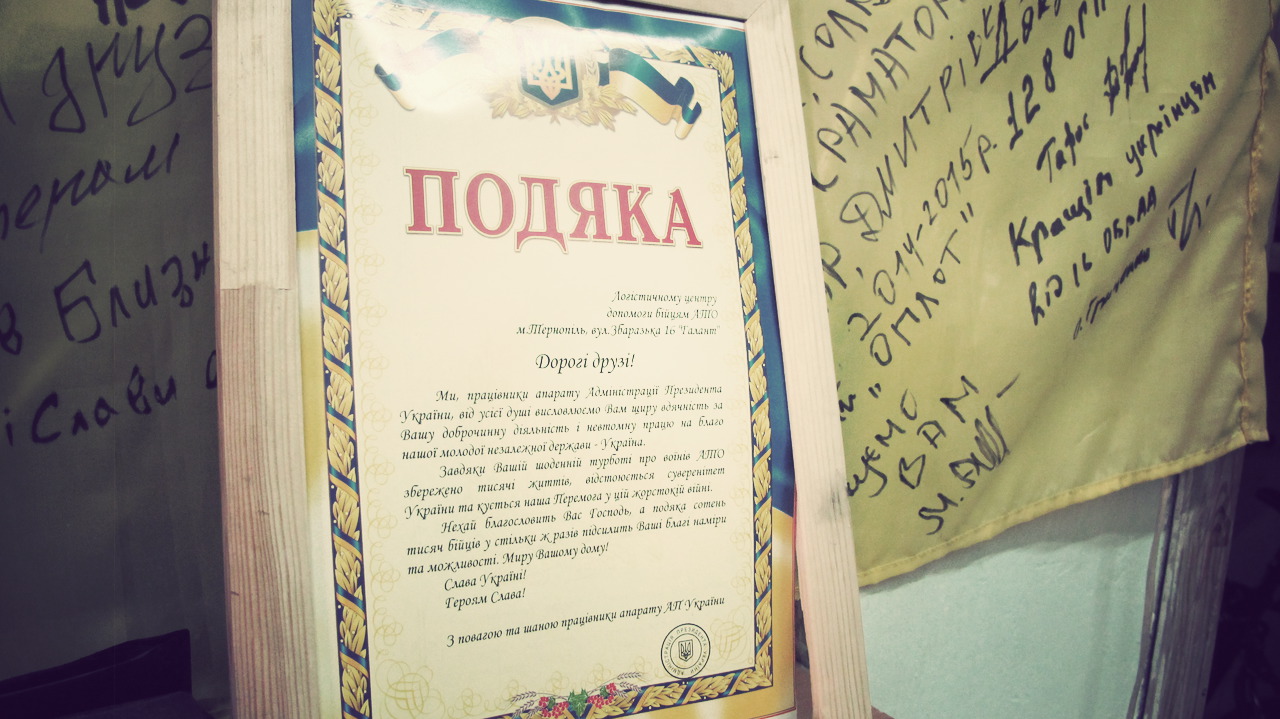 друз
в Близн
і Слави
ПОДЯКА
Логістичному центру
допомоги бійцям АТО
м.Тернопіль, вул.Збаразька 16 "Галант"
Дорогі друзі!
Ми, працівники апарату Адміністрації Президента
України, від усієї душі висловлюємо Вам щиру вдячність за
Вашу доброчинну діяльність і невтомну працю на благо
нашої молодої незалежної держави - Україна.
Завдяки Вашій щоденній турботі про воїнів АТО
збережено тисячі життів, відстоюється суверенітет
України та кується наша Перемога у цій жорстокій війні.
Нехай благословить Вас Господь, а подяка сотень
тисяч бійців у стільки ж разів підсилить Ваші благі наміри
та можливості. Миру Вашому дому!
Слава Україні!
Героям Слава!
З повагою та шаною працівники апарату АП України
КРАМАТОР
ДМИТРІ
2014-2015р. 128
"ОПЛОТ"
ВАМ
Тарас
Кращім українцям
від 16 ОБрАА